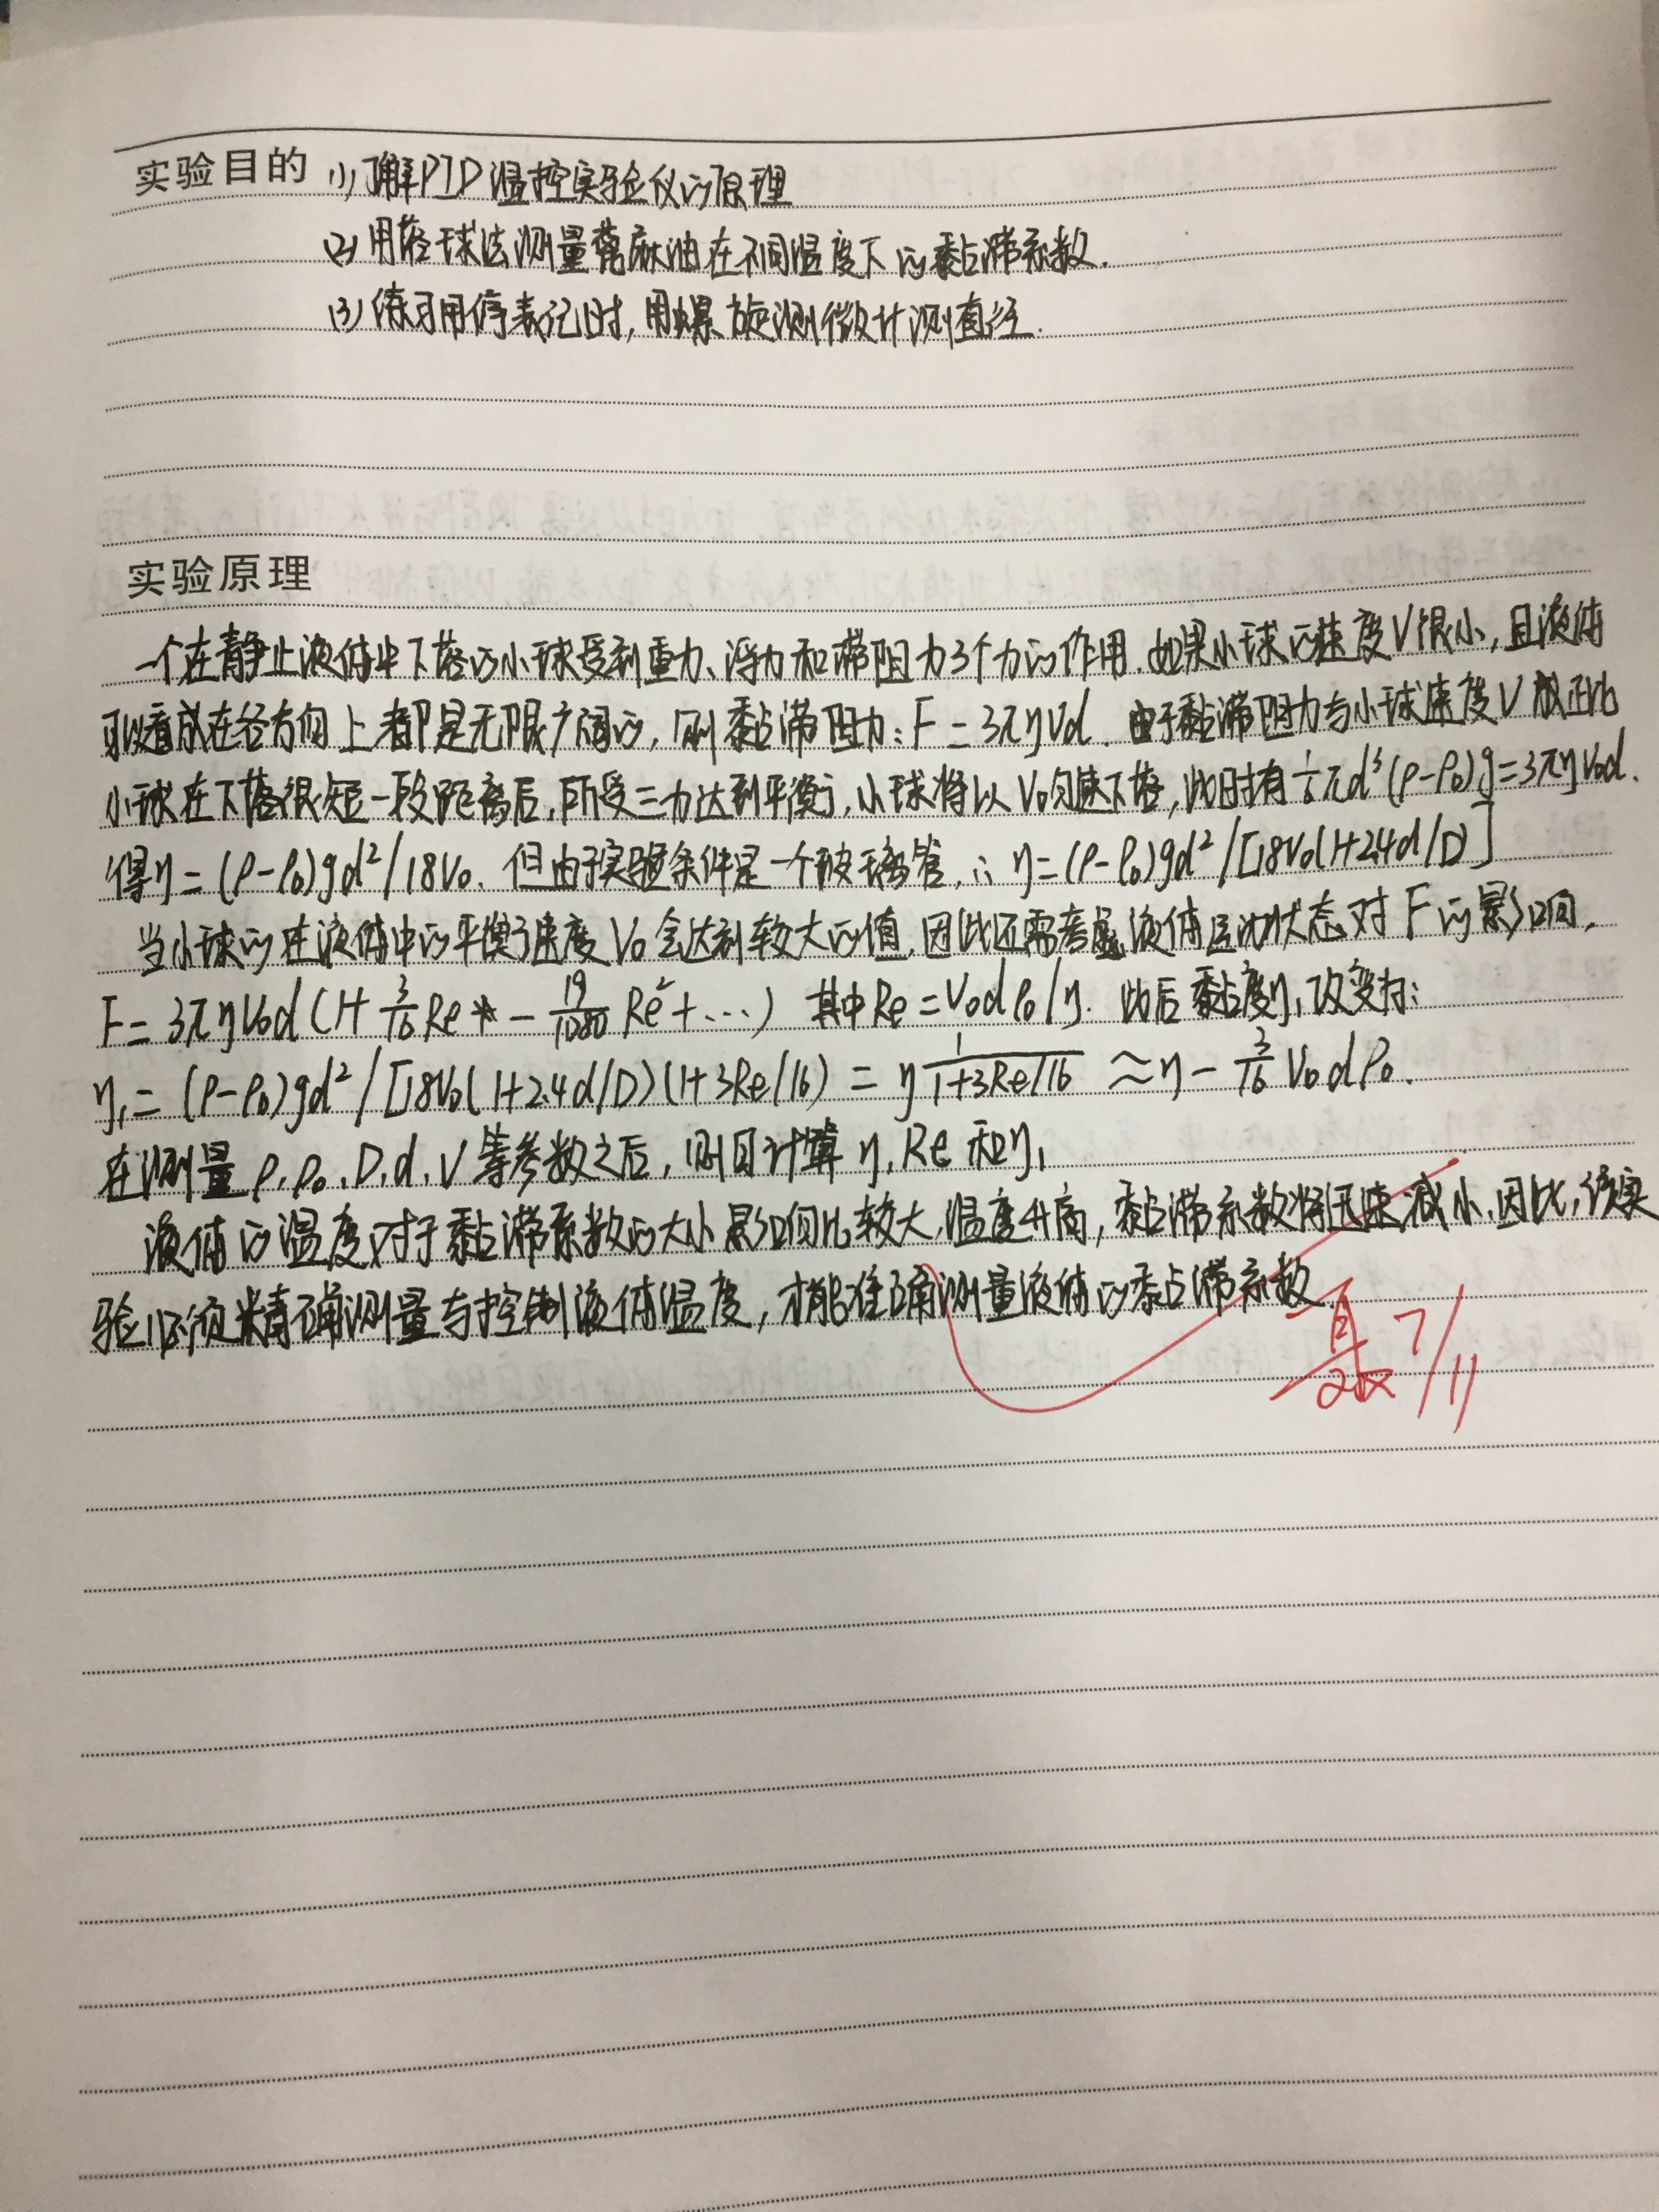 实验目的 (1)了解PID温控实验仪的原理
(2)用落球法测量蓖麻油在不同温度下的黏滞系数.
(3)练习用停表记时,用螺旋测微计测直径.
实验原理
一个在静止液体中下落的小球受到重力、浮力和滞阻力3个力的作用.如果小球的速度V很小,且液体
可以看成在各方向上都是无限广阔的,则黏滞阻力:F=3πηVd.由于黏滞阻力与小球速度V成正比
小球在下落很短一段距离后,所受三力达到平衡,小球将以V₀匀速下落,此时有 1/6 πd³(ρ-ρ₀)g=3πηV₀d.
得η=(ρ-ρ₀)gd²/18V₀. 但由于实验条件是一个玻璃管,∴ η=(ρ-ρ₀)gd²/[18V₀(1+2.4d/D)]
当小球的在液体中的平衡速度V₀会达到较大的值,因此还需考虑液体运动状态对F的影响,
F=3πηV₀d(1+ 3/16 Re - 19/1080 Re²+…) 其中Re=V₀dρ₀/η. 此后黏度η₁改变为:
η₁=(ρ-ρ₀)gd²/[18V₀(1+2.4d/D)(1+3Re/16) = η 1/(1+3Re/16) ≈ η- 3/16 V₀dρ₀.
在测量ρ、ρ₀、D、d、V等参数之后,则可计算η,Re和η₁
液体的温度对于黏滞系数的大小影响比较大,温度升高,黏滞系数将迅速减小.因此,该实
验必须精确测量与控制液体温度,才能准确测量液体的黏滞系数.
7/11